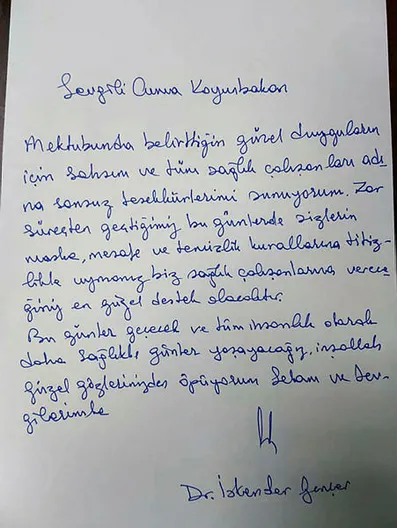 Sevgili Cunva Koyunbakan
Mektubunda belirttiğin güzel duyguların
için şahsım ve tüm sağlık çalışanları adı-
na sonsuz teşekkürlerimi sunuyorum. Zor
süreçten geçtiğimiz bu günlerde sizlerin
maske, mesafe ve temizlik kurallarına titiz-
likle uymanız biz sağlık çalışanlarına verece-
ğiniz en güzel destek olacaktır.
Bu günler geçecek ve tüm insanlık olarak
daha sağlıklı günler yaşayacağız, inşallah
güzel gözlerinizden öpüyorum Selam ve sev-
gilerimle
Dr. İskender